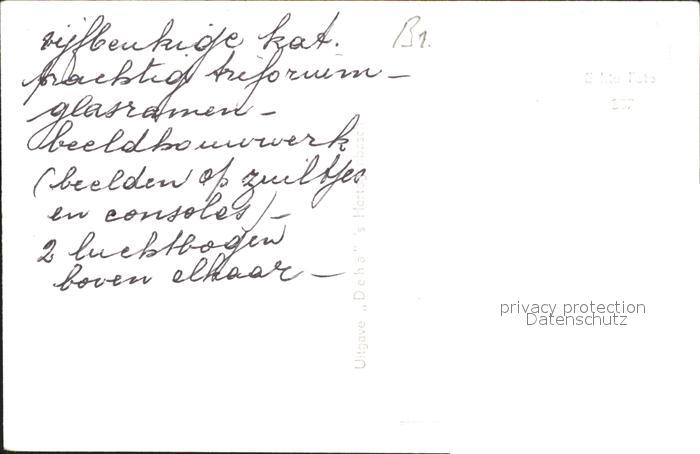 vijfbeukige kat.
B1.
prachtig triforium –
glasramen –
beeldhouwwerk
(beelden op zuiltjes
en consoles) –
2 luchtbogen
boven elkaar –
Uitgave „Deha" 's
privacy protection
Datenschutz